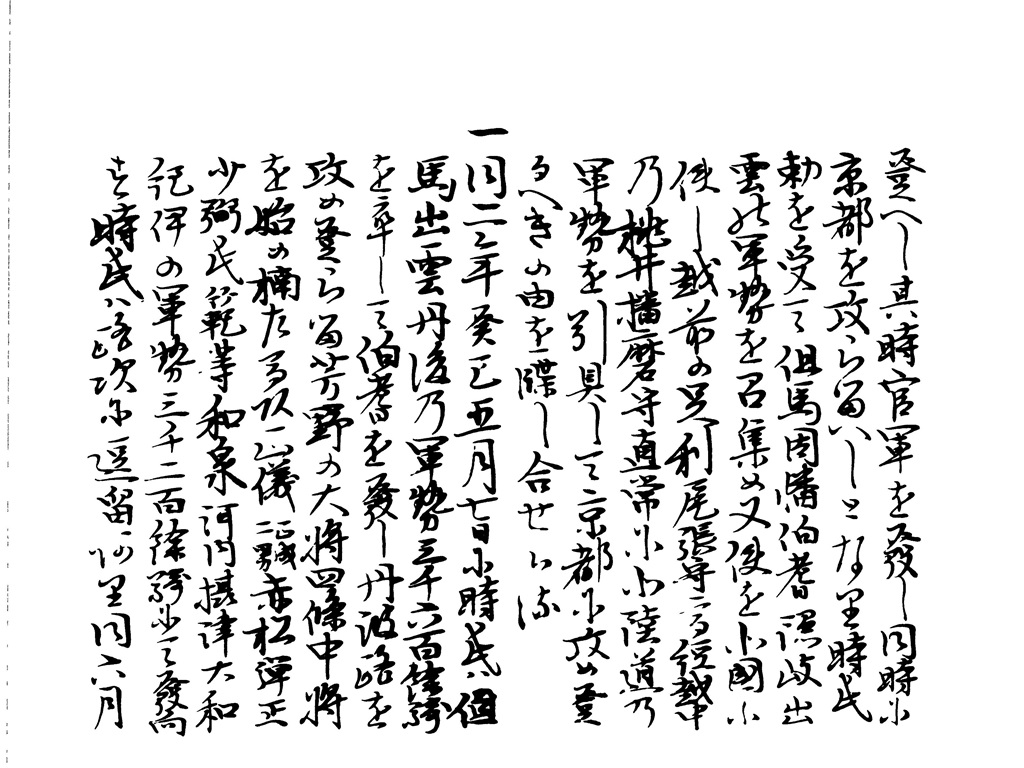 登へし其時官軍を發し同時に
京都を攻らるへしとなり時氏
勅を受て但馬因幡伯耆隠岐出
雲の軍勢を召集め又使を北國に
使し越前の足利尾張守高経越中
乃桃井播磨守直常に北陸道乃
軍勢を引具して京都に攻め登
るへきの由を牒し合せらる
一同二年癸巳五月七日に時氏は但
馬出雲丹後乃軍勢三千六百餘騎
を率して伯耆を發し丹波路を
攻め登らる芳野の大将四條中将
を始め楠左馬頭正儀正成二男赤松弾正
少弼氏範等和泉河内摂津大和
紀伊の軍勢三千二百餘騎にて發向
す時氏は路次に逗留あり同六月